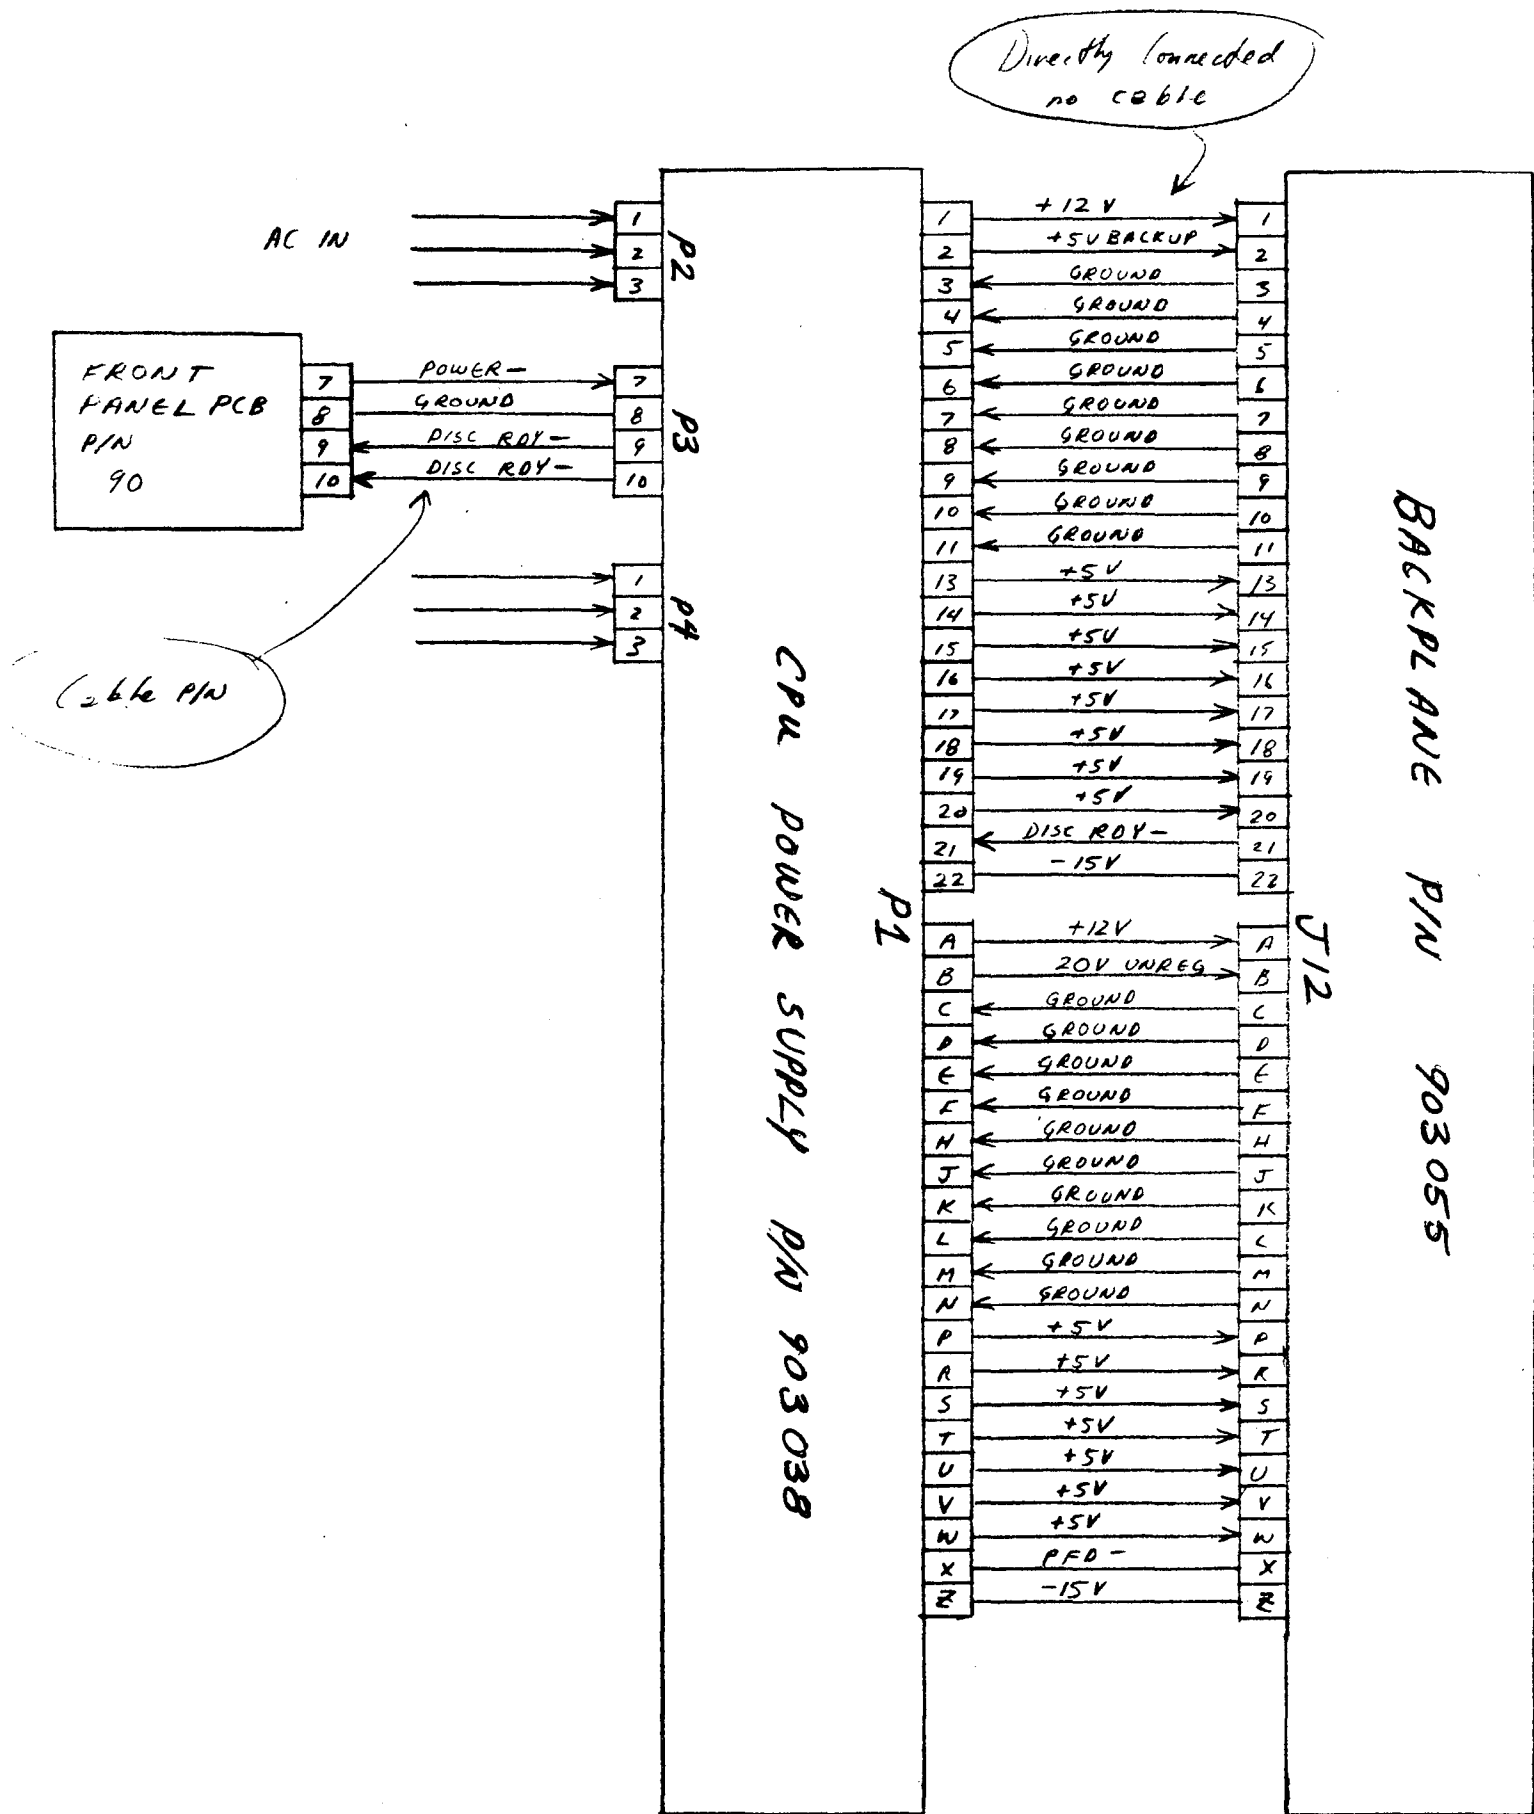 Directly Connected
no cable
AC IN
1
2
3
P2
FRONT
PANEL PCB
P/N
90
7 POWER- 7
8 GROUND 8
9 DISC RDY- 9
10 DISC RDY- 10
P3
1
2
3
P4
Cable P/N
CPU POWER SUPPLY P/N 903038
P1
1 +12V 1
2 +5V BACKUP 2
3 GROUND 3
4 GROUND 4
5 GROUND 5
6 GROUND 6
7 GROUND 7
8 GROUND 8
9 GROUND 9
10 GROUND 10
11 GROUND 11
13 +5V 13
14 +5V 14
15 +5V 15
16 +5V 16
17 +5V 17
18 +5V 18
19 +5V 19
20 +5V 20
21 DISC RDY- 21
22 -15V 22
A +12V A
B 20V UNREG B
C GROUND C
D GROUND D
E GROUND E
F GROUND F
H GROUND H
J GROUND J
K GROUND K
L GROUND L
M GROUND M
N GROUND N
P +5V P
R +5V R
S +5V S
T +5V T
U +5V U
V +5V V
W +5V W
X PFD- X
Z -15V Z
J12
BACKPLANE P/N 903055